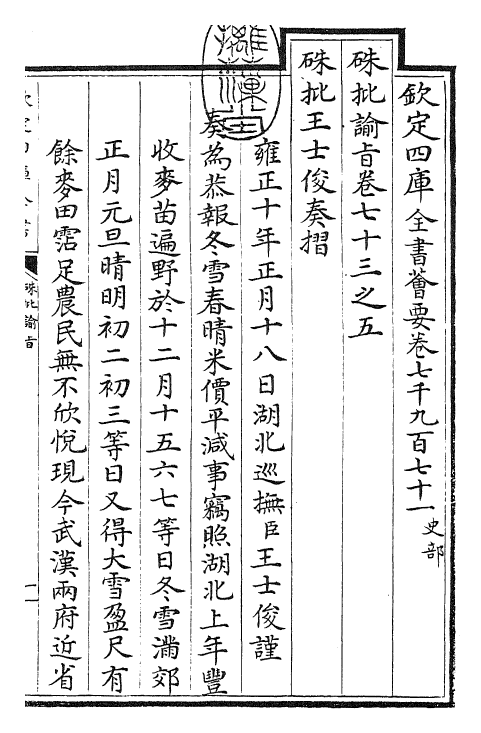 欽定四庫全書薈要卷七千九百七十一 史部
硃批諭旨卷七十三之五
硃批王士俊奏摺
雍正十年正月十八日湖北巡撫臣王士俊謹
奏為恭報冬雪春晴米價平減事竊照湖北上年豐
收麥苗遍野於十二月十五六七等日冬雪滿郊
正月元旦晴明初二初三等日又得大雪盈尺有
餘麥田霑足農民無不欣悅現今武漢兩府近省
硃批諭旨
一